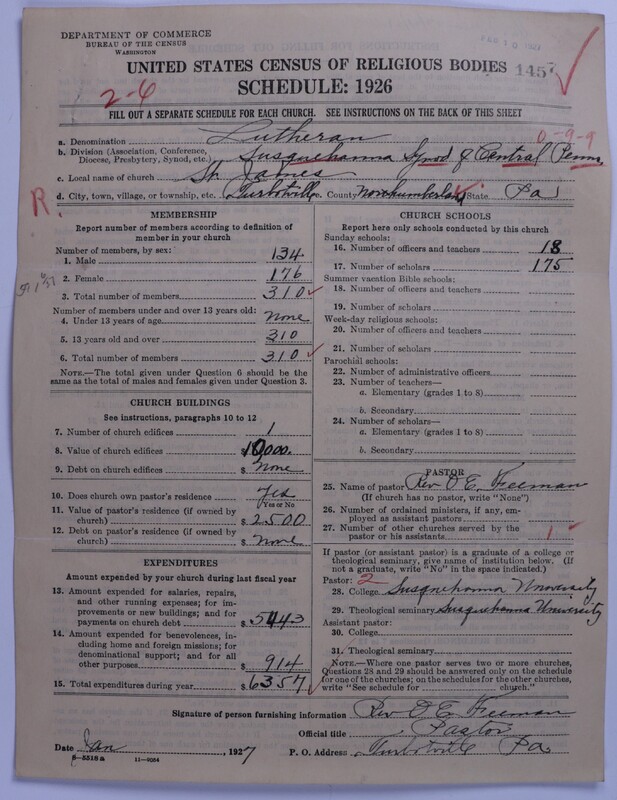 DEPARTMENT OF COMMERCE
BUREAU OF THE CENSUS
WASHINGTON
UNITED STATES CENSUS OF RELIGIOUS BODIES 1457
SCHEDULE: 1926
2-6
FILL OUT A SEPARATE SCHEDULE FOR EACH CHURCH. SEE INSTRUCTIONS ON THE BACK OF THIS SHEET
a. Denomination Lutheran 0-9-9
b. Division (Association, Conference, Diocese, Presbytery, Synod, etc.) Susquehanna Synod of Central Penna
c. Local name of church St. James
d. City, town, village, or township, etc. Turbotville e. County Northumberland f. State Pa
R.
MEMBERSHIP
Report number of members according to definition of member in your church
Number of members, by sex:
1. Male 134
2. Female 176
3. Total number of members 310
Number of members under and over 13 years old:
4. Under 13 years of age None
5. 13 years old and over 310
6. Total number of members 310
NOTE.—The total given under Question 6 should be the same as the total of males and females given under Question 3.
CHURCH BUILDINGS
See instructions, paragraphs 10 to 12
7. Number of church edifices 1
8. Value of church edifices $10,000.
9. Debt on church edifices $None
10. Does church own pastor's residence Yes
(Yes or No)
11. Value of pastor's residence (if owned by church) $2500
12. Debt on pastor's residence (if owned by church) $None
EXPENDITURES
Amount expended by your church during last fiscal year
13. Amount expended for salaries, repairs, and other running expenses; for improvements or new buildings; and for payments on church debt $5443
14. Amount expended for benevolences, including home and foreign missions; for denominational support; and for all other purposes $914
15. Total expenditures during year $6357
CHURCH SCHOOLS
Report here only schools conducted by this church
Sunday schools:
16. Number of officers and teachers 18
17. Number of scholars 175
Summer vacation Bible schools:
18. Number of officers and teachers
19. Number of scholars
Week-day religious schools:
20. Number of officers and teachers
21. Number of scholars
Parochial schools:
22. Number of administrative officers
23. Number of teachers—
a. Elementary (grades 1 to 8)
b. Secondary
24. Number of scholars—
a. Elementary (grades 1 to 8)
b. Secondary
PASTOR
25. Name of pastor Rev O E Freeman
(If church has no pastor, write "None")
26. Number of ordained ministers, if any, employed as assistant pastors
27. Number of other churches served by the pastor or his assistants 1
If pastor (or assistant pastor) is a graduate of a college or theological seminary, give name of institution below. (If not a graduate, write "No" in the space indicated.)
Pastor: 2
28. College Susquehanna University
29. Theological seminary Susquehanna University
Assistant pastor:
30. College
31. Theological seminary
NOTE.—Where one pastor serves two or more churches, Questions 28 and 29 should be answered only on the schedule for one of the churches; on the schedules for the other churches, write "See schedule for church."
Signature of person furnishing information Rev O E Freeman
Official title Pastor
Date Jan, 1927 P. O. Address Turbotville Pa.
8-5518a 11-9064